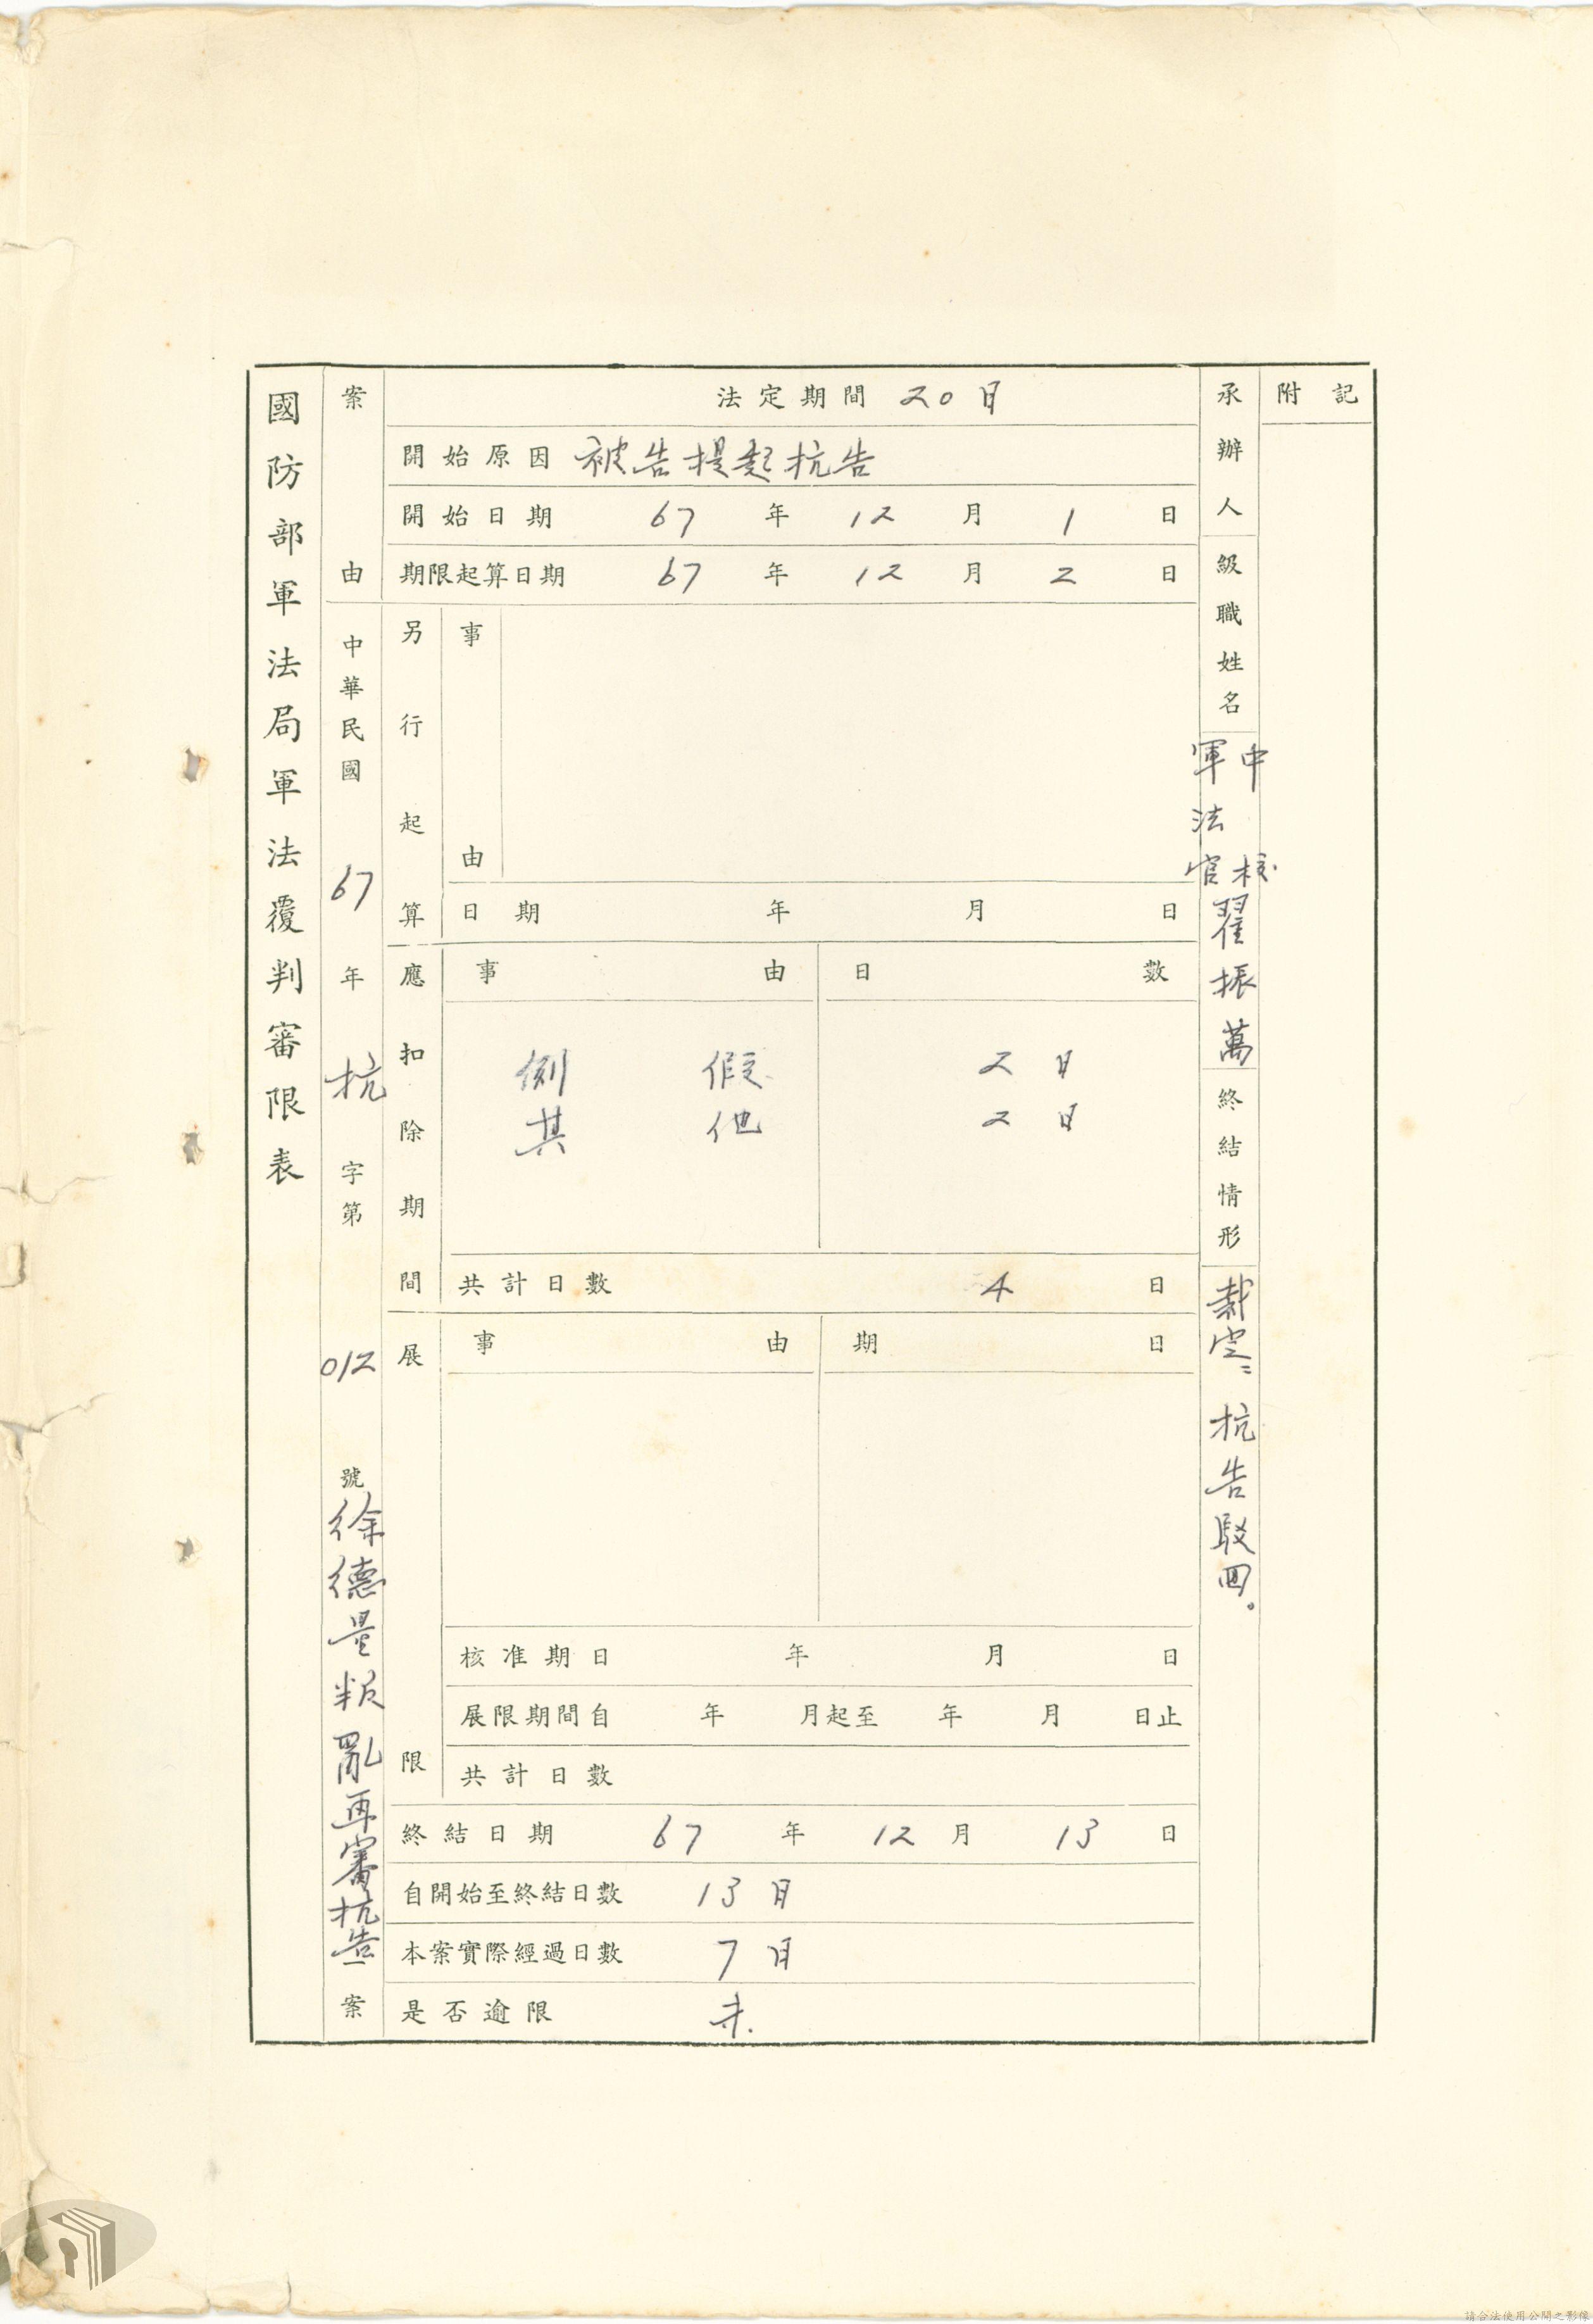 國防部軍法局軍法覆判審限表
案由
中華民國67年抗字第012號徐德量叛亂再審抗告案
法定期間 20日
開始原因 被告提起抗告
開始日期 67年12月1日
期限起算日期 67年12月2日
另行起算
事由
日期 年 月 日
應扣除期間
事由 日數
例假 2日
其他 2日
共計日數 4日
展限
事由 期日
核准期日 年 月 日
展限期間自 年 月起至 年 月 日止
共計日數
終結日期 67年12月13日
自開始至終結日數 13日
本案實際經過日數 7日
是否逾限 未.
承辦人
級職姓名
軍法官
中校
翟振萬
終結情形
裁定:抗告駁回。
附記
請合法使用公開之影像